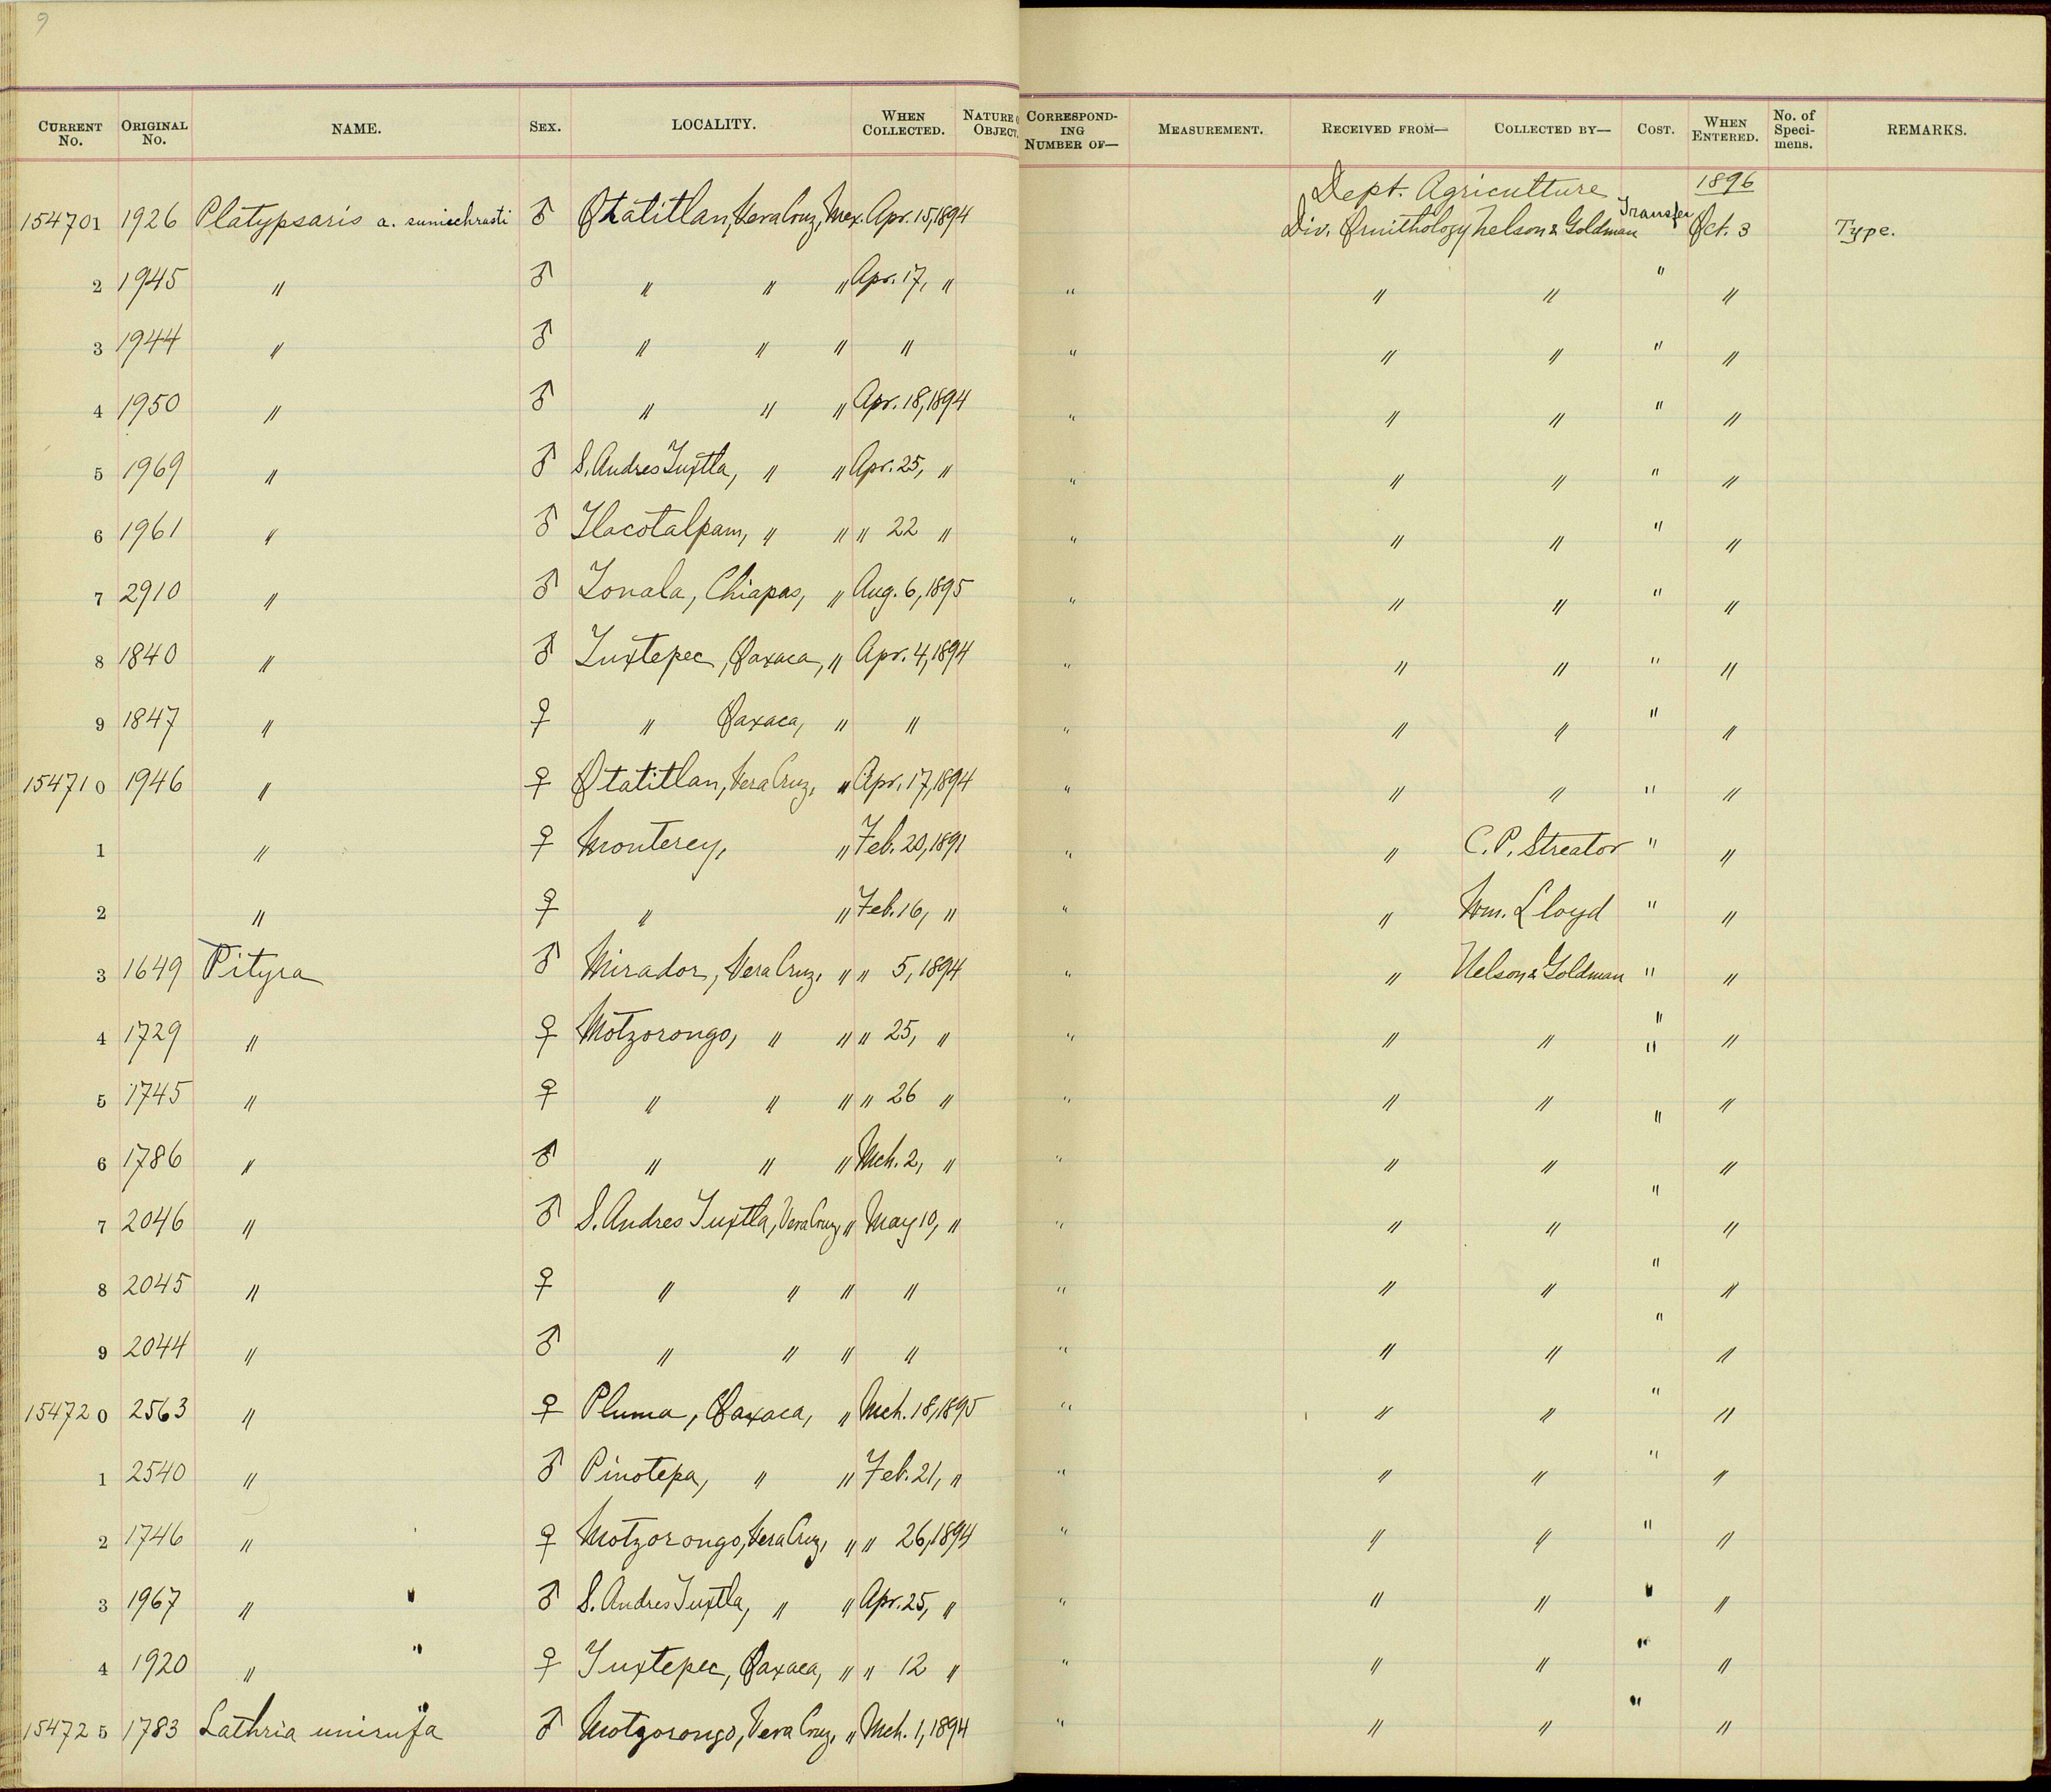 9
CURRENT No. ORIGINAL No. NAME. SEX. LOCALITY. WHEN COLLECTED. NATURE O OBJECT. CORRESPONDING NUMBER OF— MEASUREMENT. RECEIVED FROM— COLLECTED BY— COST. WHEN ENTERED. No. of Specimens. REMARKS.
Dept. Agriculture 1896
154701 1926 Platypsaris a. sumichrasti ♂ Otatitlan, Vera Cruz, Mex. Apr. 15, 1894 Div. Ornithology Nelson & Goldman Transfer Oct. 3 Type.
2 1945 " ♂ " " " Apr. 17, " " " " " "
3 1944 " ♂ " " " " " " " " "
4 1950 " ♂ " " " Apr. 18, 1894 " " " " "
5 1969 " ♂ S. Andres Tuxtla, " " Apr. 25, " " " " " "
6 1961 " ♂ Tlacotalpam, " " " 22 " " " " " "
7 2910 " ♂ Tonala, Chiapas, " Aug. 6, 1895 " " " " "
8 1840 " ♂ Tuxtepec, Oaxaca, " Apr. 4, 1894 " " " " "
9 1847 " ♀ " Oaxaca, " " " " " " "
154710 1946 " ♀ Otatitlan, Vera Cruz, " Apr. 17, 1894 " " " " "
1 " ♀ Monterey, " Feb. 20, 1891 " " C. P. Streator " "
2 " ♀ " " Feb. 16, " " " Wm. Lloyd " "
3 1649 Pityra ♂ Mirador, Vera Cruz, " " 5, 1894 " " Nelson & Goldman " "
4 1729 " ♀ Motzorongo, " " " 25, " " " " " " "
5 1745 " ♀ " " " " 26 " " " " " "
6 1786 " ♂ " " " Mch. 2, " " " " " "
7 2046 " ♂ S. Andres Tuxtla, Vera Cruz, " May 10, " " " " " "
8 2045 " ♀ " " " " " " " " "
9 2044 " ♂ " " " " " " " " "
154720 2563 " ♀ Pluma, Oaxaca, " Mch. 18, 1895 " " " " "
1 2540 " ♂ Pinotepa, " " Feb. 21, " " " " " "
2 1746 " ♀ Motzorongo, Vera Cruz, " " 26, 1894 " " " " "
3 1967 " " ♂ S. Andres Tuxtla, " " Apr. 25, " " " " " "
4 1920 " " ♀ Tuxtepec, Oaxaca, " " 12 " " " " " "
154725 1783 Lathria unirufa " ♂ Motzorongo, Vera Cruz, " Mch. 1, 1894 " " " " "